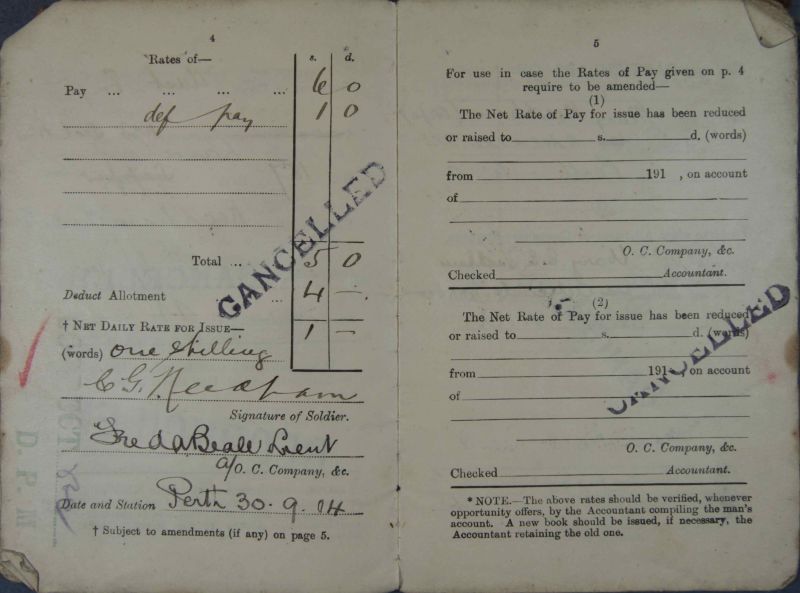 4
Rates of—
s. d.
Pay ... ... ... ... 6 0
def pay 1 0
Total ... 5 0
CANCELLED
Deduct Allotment ... 4 –
† NET DAILY RATE FOR ISSUE— 1 –
(words) one shilling
C G. Needham
Signature of Soldier.
Fred A Beale Lieut
a/O. C. Company, &c.
Date and Station Perth 30.9.14
† Subject to amendments (if any) on page 5.
5
For use in case the Rates of Pay given on p. 4
require to be amended—
(1)
The Net Rate of Pay for issue has been reduced
or raised to s. d. (words)
from 191 , on account
of
O. C. Company, &c.
Checked Accountant.
(2)
The Net Rate of Pay for issue has been reduced
or raised to s. d. (words)
CANCELLED
from 191 , on account
of
O. C. Company, &c.
Checked Accountant.
* NOTE.—The above rates should be verified, whenever
opportunity offers, by the Accountant compiling the man's
account. A new book should be issued, if necessary, the
Accountant retaining the old one.